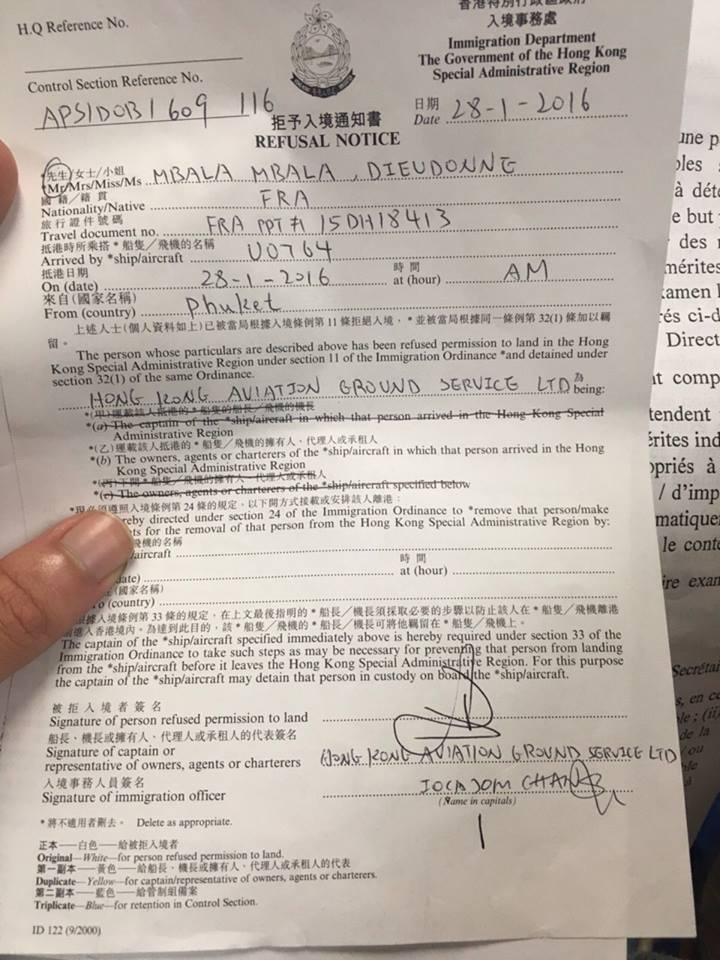 H.Q Reference No.
香港特別行政區政府
入境事務處
Immigration Department
The Government of the Hong Kong
Special Administrative Region
Control Section Reference No.
APSIDOB1609 116
日期
Date 28-1-2016
拒予入境通知書
REFUSAL NOTICE
先生/女士/小姐
(Mr/Mrs/Miss/Ms MBALA MBALA, DIEUDONNE
國籍/籍貫
Nationality/Native FRA
旅行證件號碼
Travel document no. FRA PPT #15DH18413
抵港時所乘搭*船隻/飛機的名稱
Arrived by *ship/aircraft UO764
抵港日期
時間
On (date) 28-1-2016 at (hour) AM
來自(國家名稱)
From (country) Phuket
上述人士(個人資料如上)已被當局根據入境條例第11條拒絕入境,*並被當局根據同一條例第32(1)條加以羈
留。
The person whose particulars are described above has been refused permission to land in the Hong
Kong Special Administrative Region under section 11 of the Immigration Ordinance *and detained under
section 32(1) of the same Ordinance.
HONG KONG AVIATION GROUND SERVICE LTD 為
being:
*(甲)運載該人抵港的*船隻的船長/飛機的機長
*(a) The captain of the *ship/aircraft in which that person arrived in the Hong Kong Special
Administrative Region
*(乙)運載該人抵港的*船隻/飛機的擁有人、代理人或承租人
*(b) The owners, agents or charterers of the *ship/aircraft in which that person arrived in the Hong
Kong Special Administrative Region
*(丙)下開*船隻/飛機的擁有人、代理人或承租人
*(c) The owners, agents or charterers of the *ship/aircraft specified below
*現必須遵照入境條例第24條的規定,以下開方式接載或安排該人離港:
reby directed under section 24 of the Immigration Ordinance to *remove that person/make
ts for the removal of that person from the Hong Kong Special Administrative Region by:
飛機的名稱
/aircraft
時間
date) at (hour)
(國家名稱)
(country)
根據入境條例第33條的規定,在上文最後指明的*船長/機長須採取必要的步驟以防止該人在*船隻/飛機離港
前進入香港境內。為達到此目的,該*船隻/飛機的*船長/機長可將他羈留在*船隻/飛機上。
The captain of the *ship/aircraft specified immediately above is hereby required under section 33 of the
Immigration Ordinance to take such steps as may be necessary for preventing that person from landing
from the *ship/aircraft before it leaves the Hong Kong Special Administrative Region. For this purpose
the captain of the *ship/aircraft may detain that person in custody on board the *ship/aircraft.
被拒入境者簽名
Signature of person refused permission to land
船長、機長或擁有人、代理人或承租人的代表簽名
Signature of captain or
representative of owners, agents or charterers HONG KONG AVIATION GROUND SERVICE LTD
入境事務人員簽名
Signature of immigration officer
(Name in capitals)
*將不適用者刪去。 Delete as appropriate.
正本——白色——給被拒入境者
Original—White—for person refused permission to land.
第一副本——黃色——給船長、機長或擁有人、代理人或承租人的代表
Duplicate—Yellow—for captain/representative of owners, agents or charterers.
第二副本——藍色——給管制組備案
Triplicate—Blue—for retention in Control Section.
ID 122 (9/2000)
une p
à dét
e but
des
mérites
xamen
Direct
comp
tendent
érites ind
opriés à
/ d'imp
matique
le cont
ire exam
Secréta
en
; (ii
de la
ou